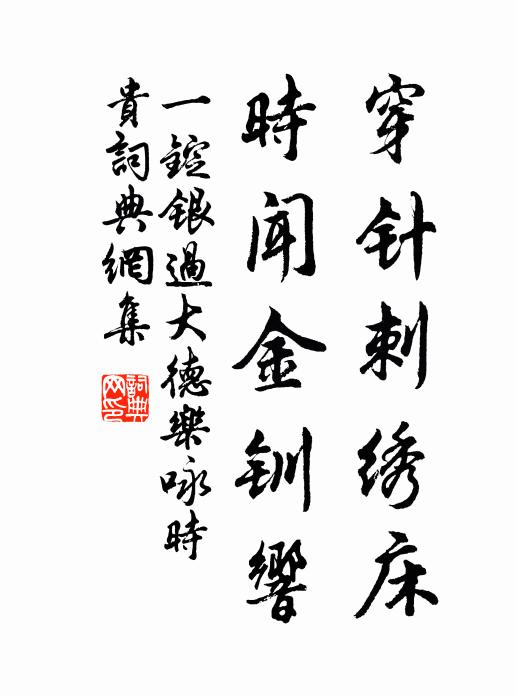 穿针刺绣床
時闻金钏響
一錠银過大德樂咏時
貴詞典網集
詞典网印